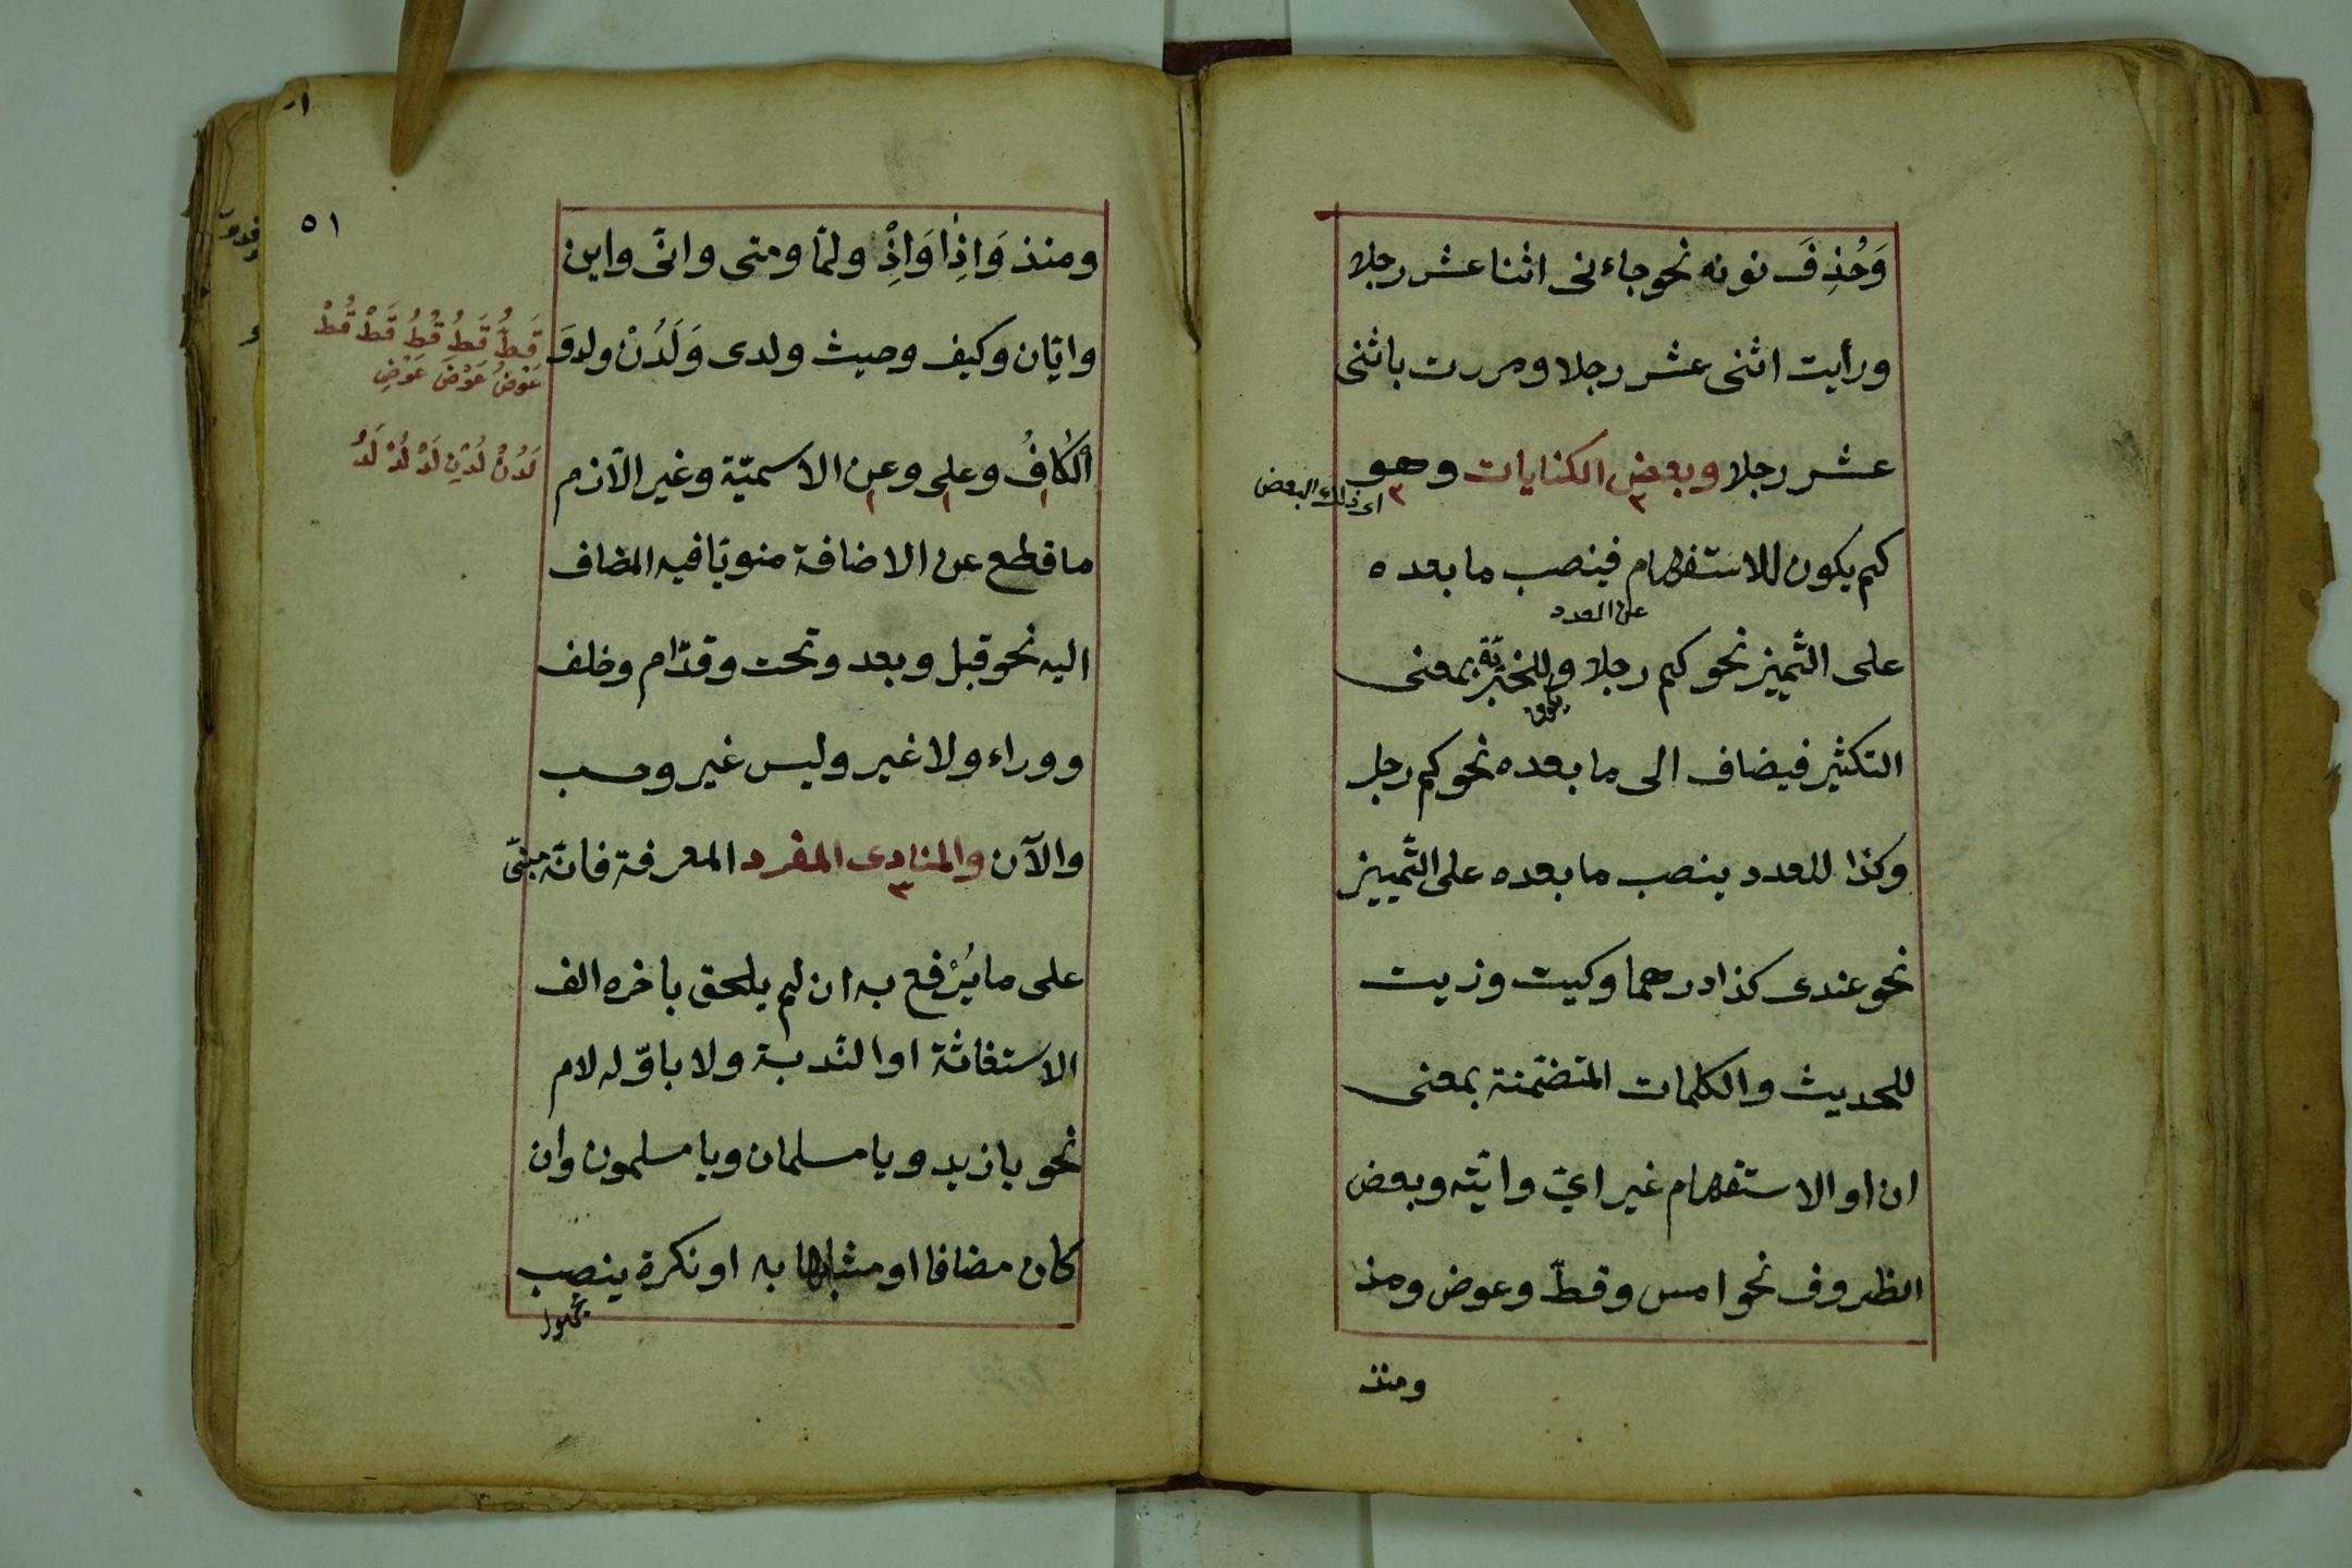 وَحُذِفَ نونه نحو جاءنى اثنا عشر رجلا
ورأيت اثنى عشر رجلا ومررت باثنى
عشر رجلا وبعض الكنايات وهو
اى ذلك البعض
كم يكون للاستفهام فينصب ما بعده
عن العدد
على التّميز نحو كم رجلا وللخبريّة بمعنى
يكون
التكثير فيضاف الى ما بعده نحو كم رجل
وكذا للعدد ينصب ما بعده على التّمييز
نحو عندى كذا درهما وكيت وزيت
للحديث والكلمات المتضمّنة بمعنى
ان او الاستفهام غير اىّ وايّة وبعض
الظروف نحو امس وقطّ وعوض ومذ
ومنذ
٥١
ومنذ وَاِذَا وَاِذْ ولمّا ومتى وانّى واين
وايّان وكيف وحيث ولدى وَلَدُنْ ولدوَ
قَطُّ قَطُ قُطُ قَطْ قُطْ
عَوْضُ عَوْضَ عَوْضِ
اَلْكَافُ وعلى وعن الاسميّة وغير الّازم
لَدُنْ لَدْنِ لَدْ لُدْ لَدُ
ما قطع عن الاضافة منويّا فيه المضاف
اليه نحو قبل وبعد وتحت وقدّام وخلف
ووراء ولا غير وليس غير وحسب
والآن والمنادى المفرد المعرفة فانّه مبنىّ
على ما يُرْفع به ان لم يلحق باخره الف
الاستغاثة او النّدبة ولا باوّله لام
نحو يا زيد ويا مسلمان ويا مسلمون وان
كان مضافا او مشابها به او نكرة ينصب
مجهول